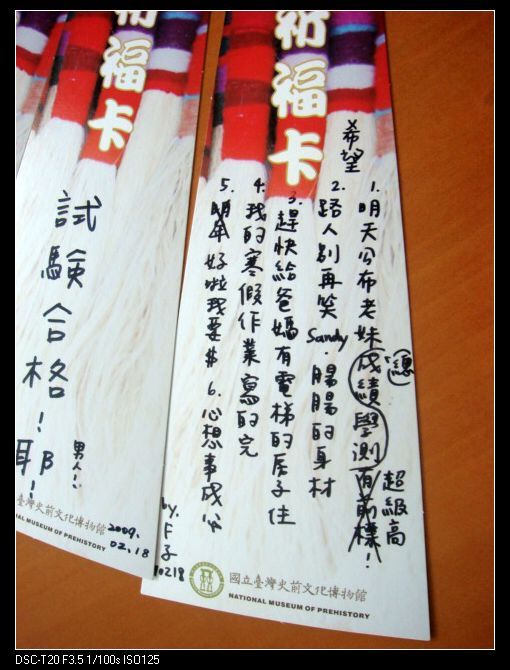 祈福卡
試驗合格!
耶!
男人!!
2009.
02.18
臺灣史前文化博物館
NAL MUSEUM OF PREHISTORY
祈福卡
希望
1. 明天公布老妹成績學測
總
超級高
2. 路人別再笑Sandy.腸腸的身材
3. 趕快給爸媽有電梯的房子住
4. 我的寒假作業寫的完
5. 好啦我要$
6. 心想事成
by. F子
10218
國立臺灣史前文化博物館
NATIONAL MUSEUM OF PREHISTORY
DSC-T20 F3.5 1/100s ISO125